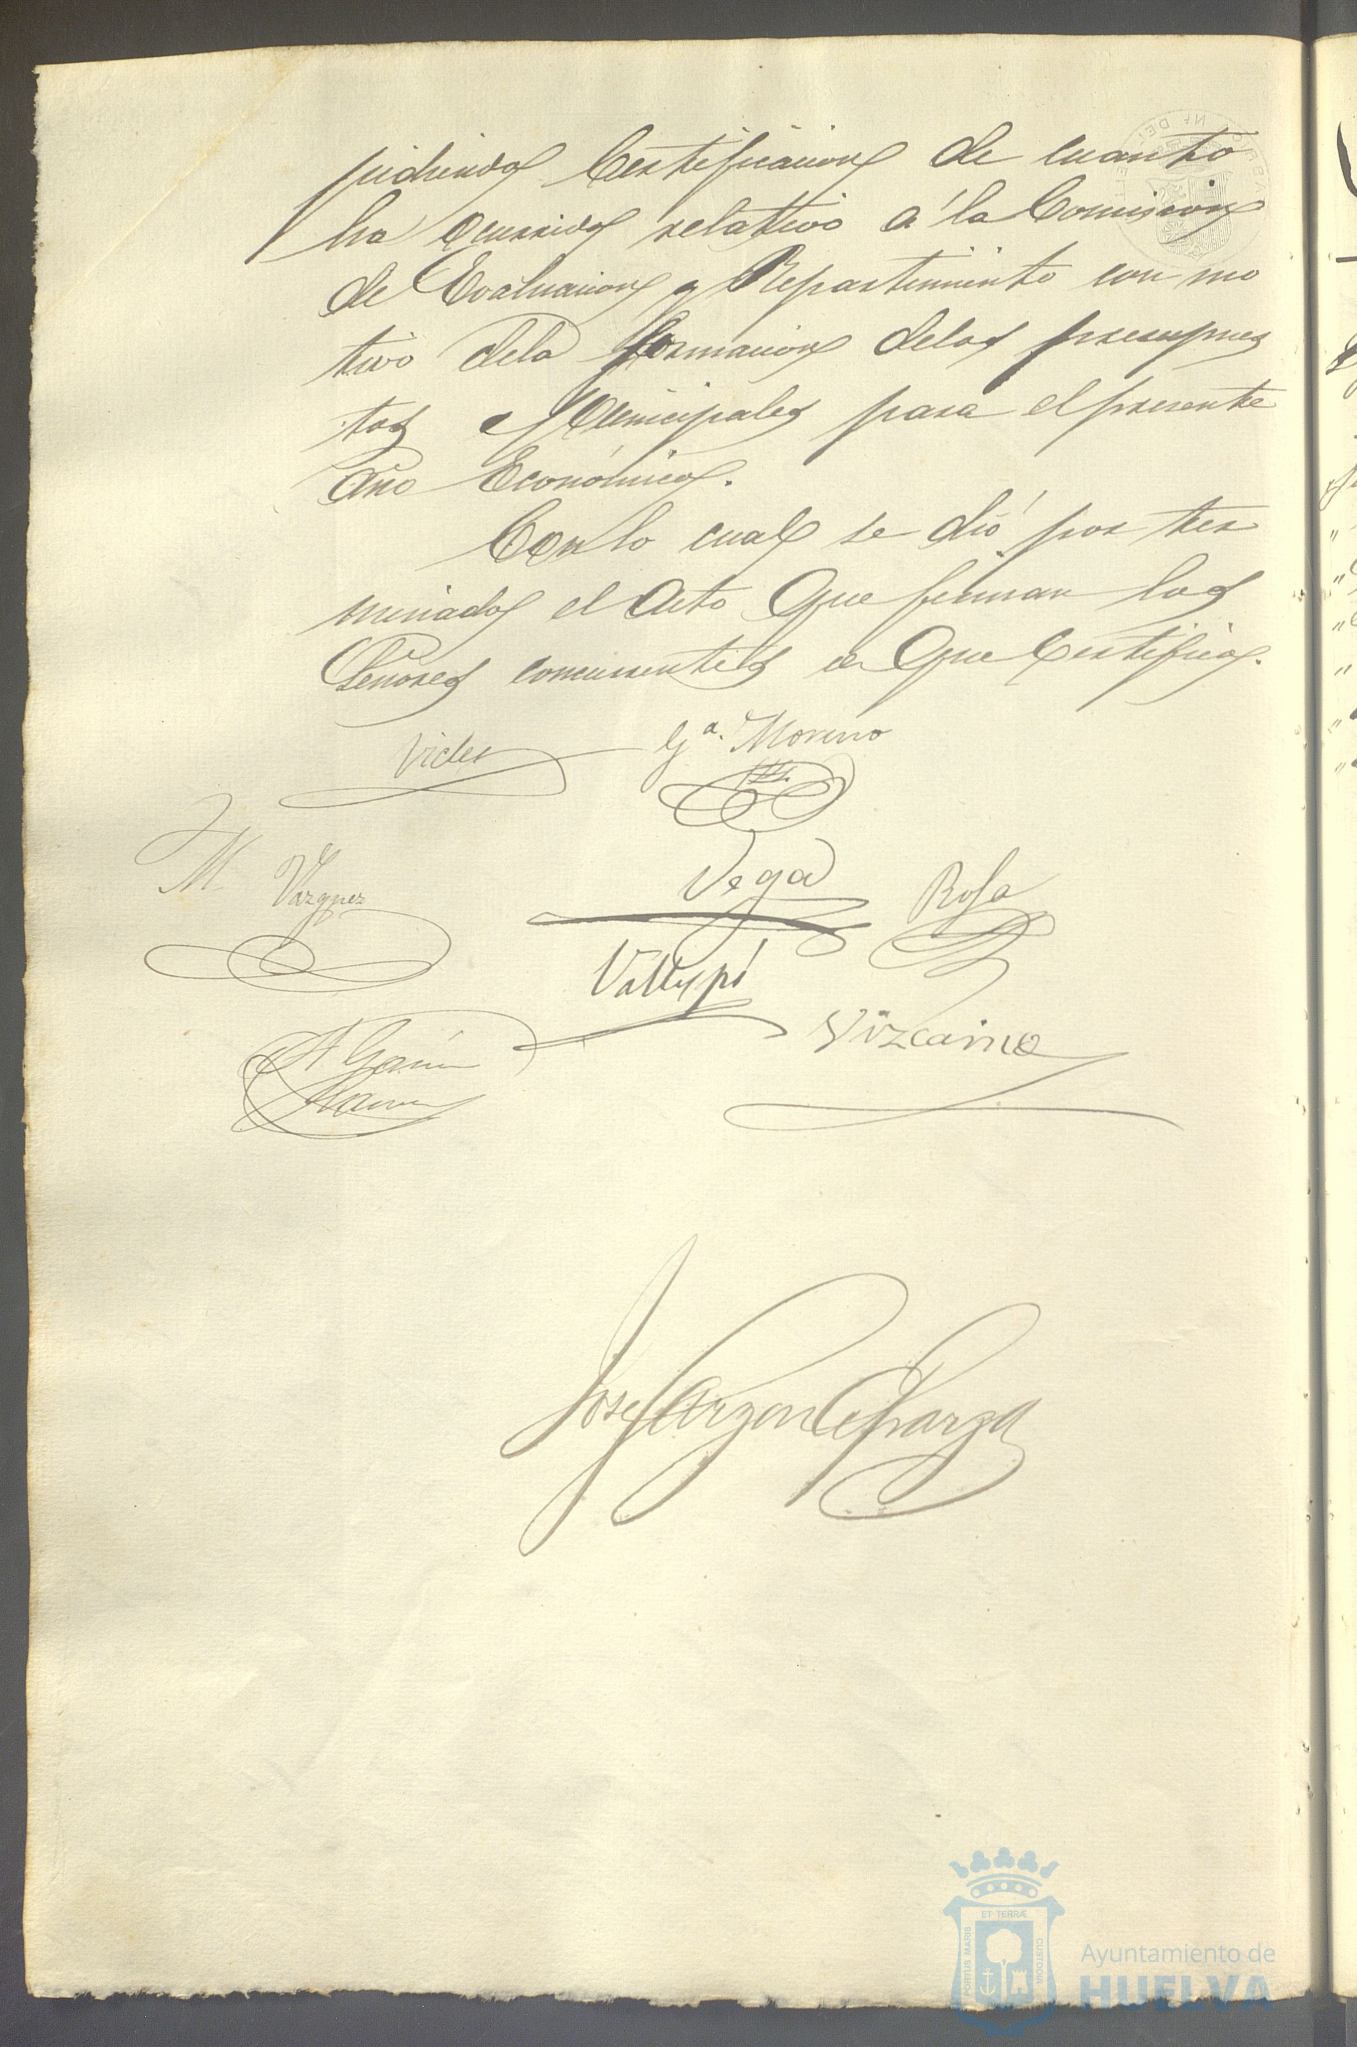 pidiendo Certificacion de cuanto
ha ocurrido relativo á la Comision
de Evaluacion y Repartimiento con mo
tivo dela formacion delos presupues
tos Municipales para el presente
Año Económico.
Con lo cual se dió por ter
minado el acto que firman los
Señores concurrentes de que Certifico.
Vides Gª. Moreno
M Vazquez
Vega Rofa
Vallespí
Vizcaino
A Garcia
Ramos
Jose Garzon
ET TERRÆ
PORTUS MARIS
CUSTODIA
Ayuntamiento de
HUELVA